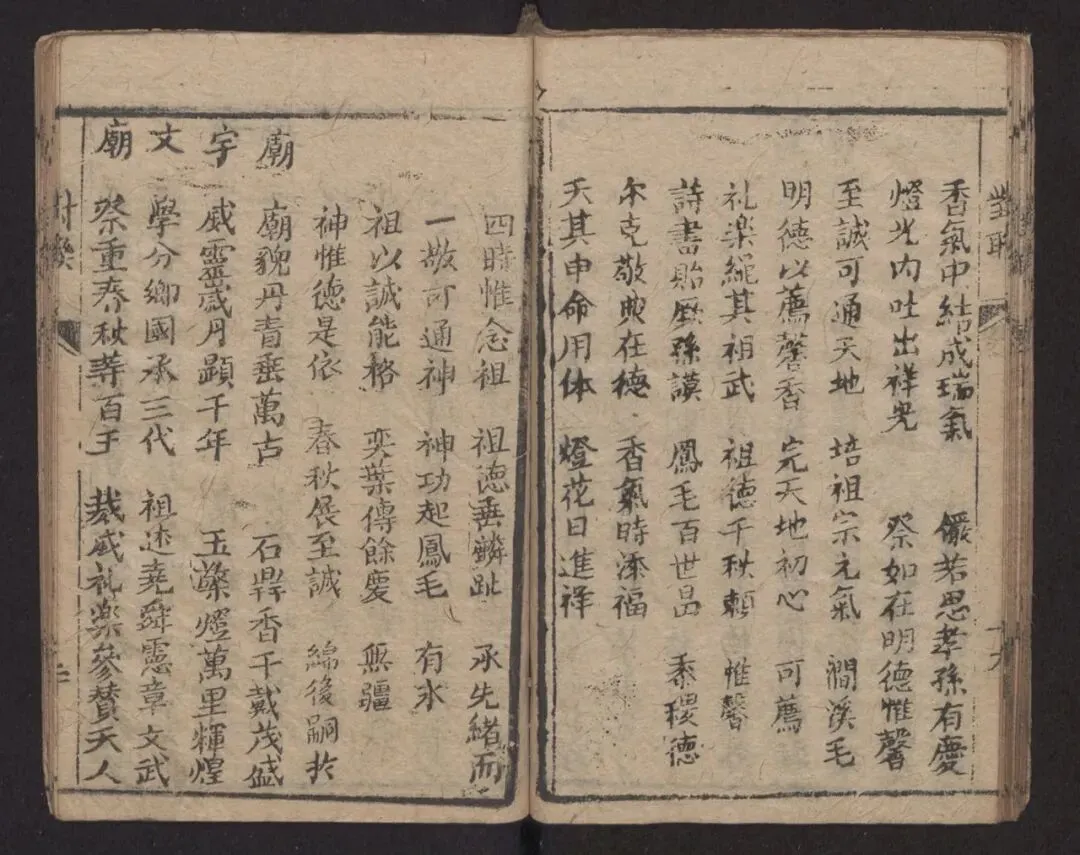 香氣中結成瑞氣　儼若思孝孫有慶
燈光內吐出祥光　祭如在明德惟馨
至誠可通天地　培祖宗元氣　澗溪毛
明德以薦馨香　完天地初心　可薦
礼楽繩其祖武　祖德千秋頼　惟馨
詩書貽厥孫謨　鳳毛百世昌　黍稷德
尔克敬典在德　香氣時添福
天其申命用休　燈花日進祥
四時惟念祖　祖德垂麟趾　承先緒而
一敬可通神　神功起鳳毛　有永
祖以誠能格　奕葉傳餘慶　無疆
神惟德是依　春秋展至誠　綿後嗣於
廟　廟貌丹青垂萬古　石鼎香千載茂盛
宇　威靈歳月顕千年　玉藻燈萬里輝煌
文　學分鄉國承三代　祖述堯舜憲章文武
廟　祭重春秋等百王　裁成礼楽參賛天人